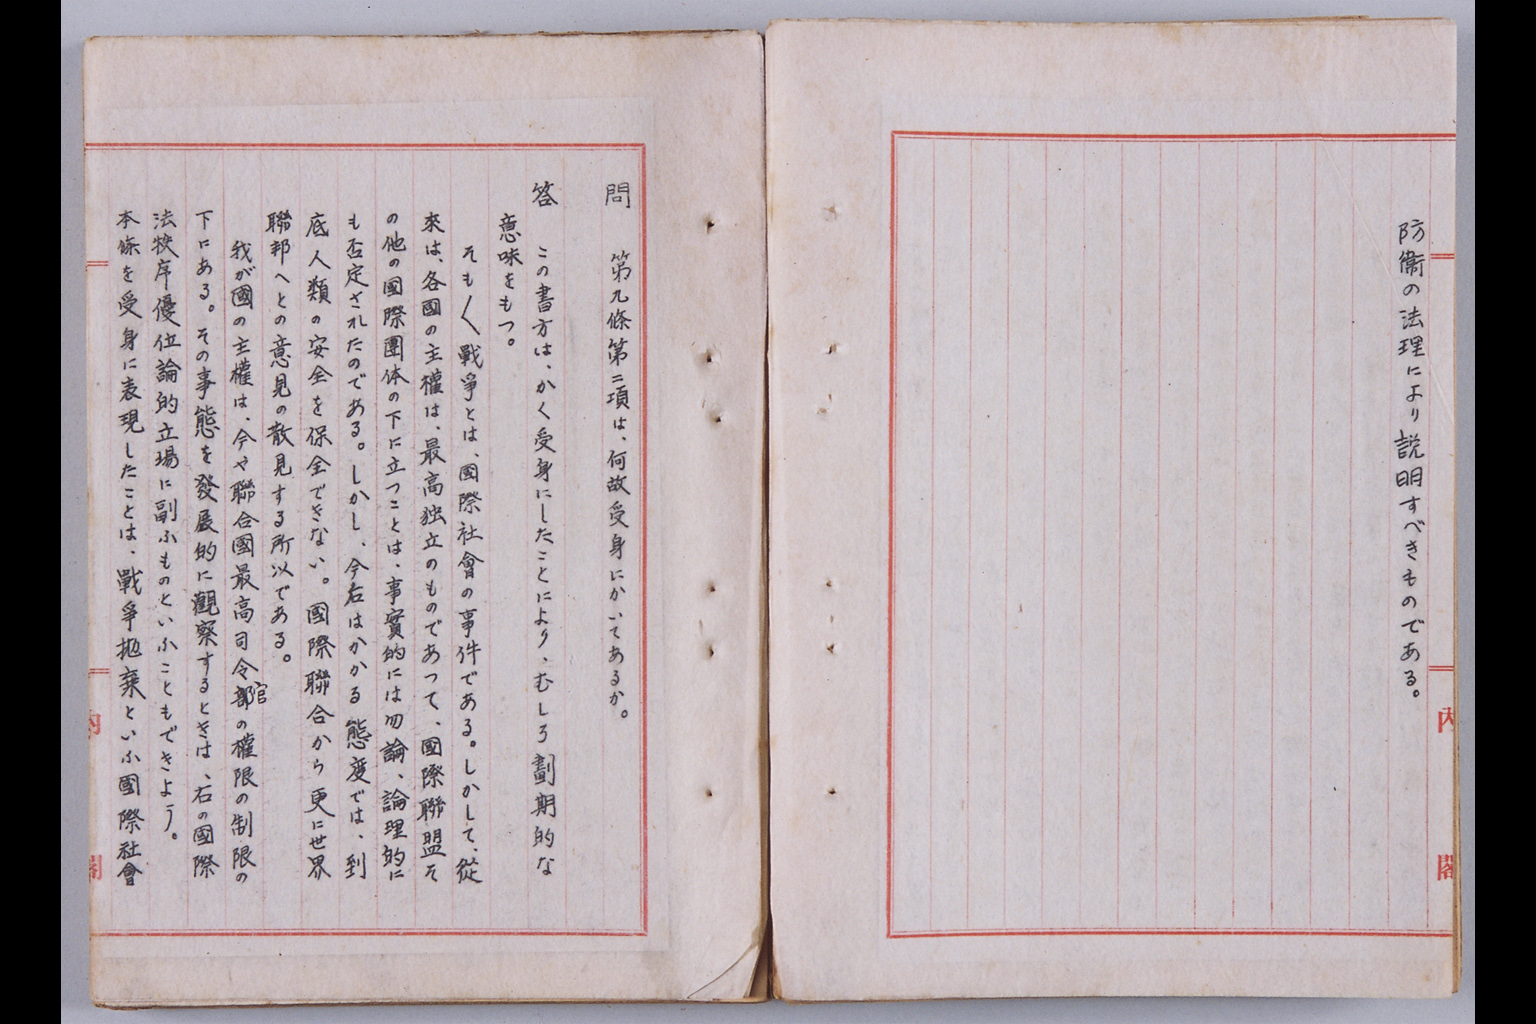 防衞の法理により説明すべきものである。
內
閣
問　第九條第二項は、何故受身にかいてあるか。
答　この書方は、かく受身にしたことにより、むしろ劃期的な
意味をもつ。
そも〱戰爭とは、國際社會の事件である。しかして、從
來は、各國の主權は、最高独立のものであつて、國際聯盟そ
の他の國際團体の下に立つことは、事實的には勿論、論理的に
も否定されたのである。しかし、今右はかかる態度では、到
底人類の安全を保全できない。國際聯合から更に世界
聯邦へとの意見の散見する所以である。
我が國の主權は、今や聯合國最高司令部官の權限の制限の
下にある。その事態を發展的に觀察するときは、右の國際
法秩序優位論的立場に副ふものといふこともできよう。
本條を受身に表現したことは、戰爭拋棄といふ國際社會
內
閣